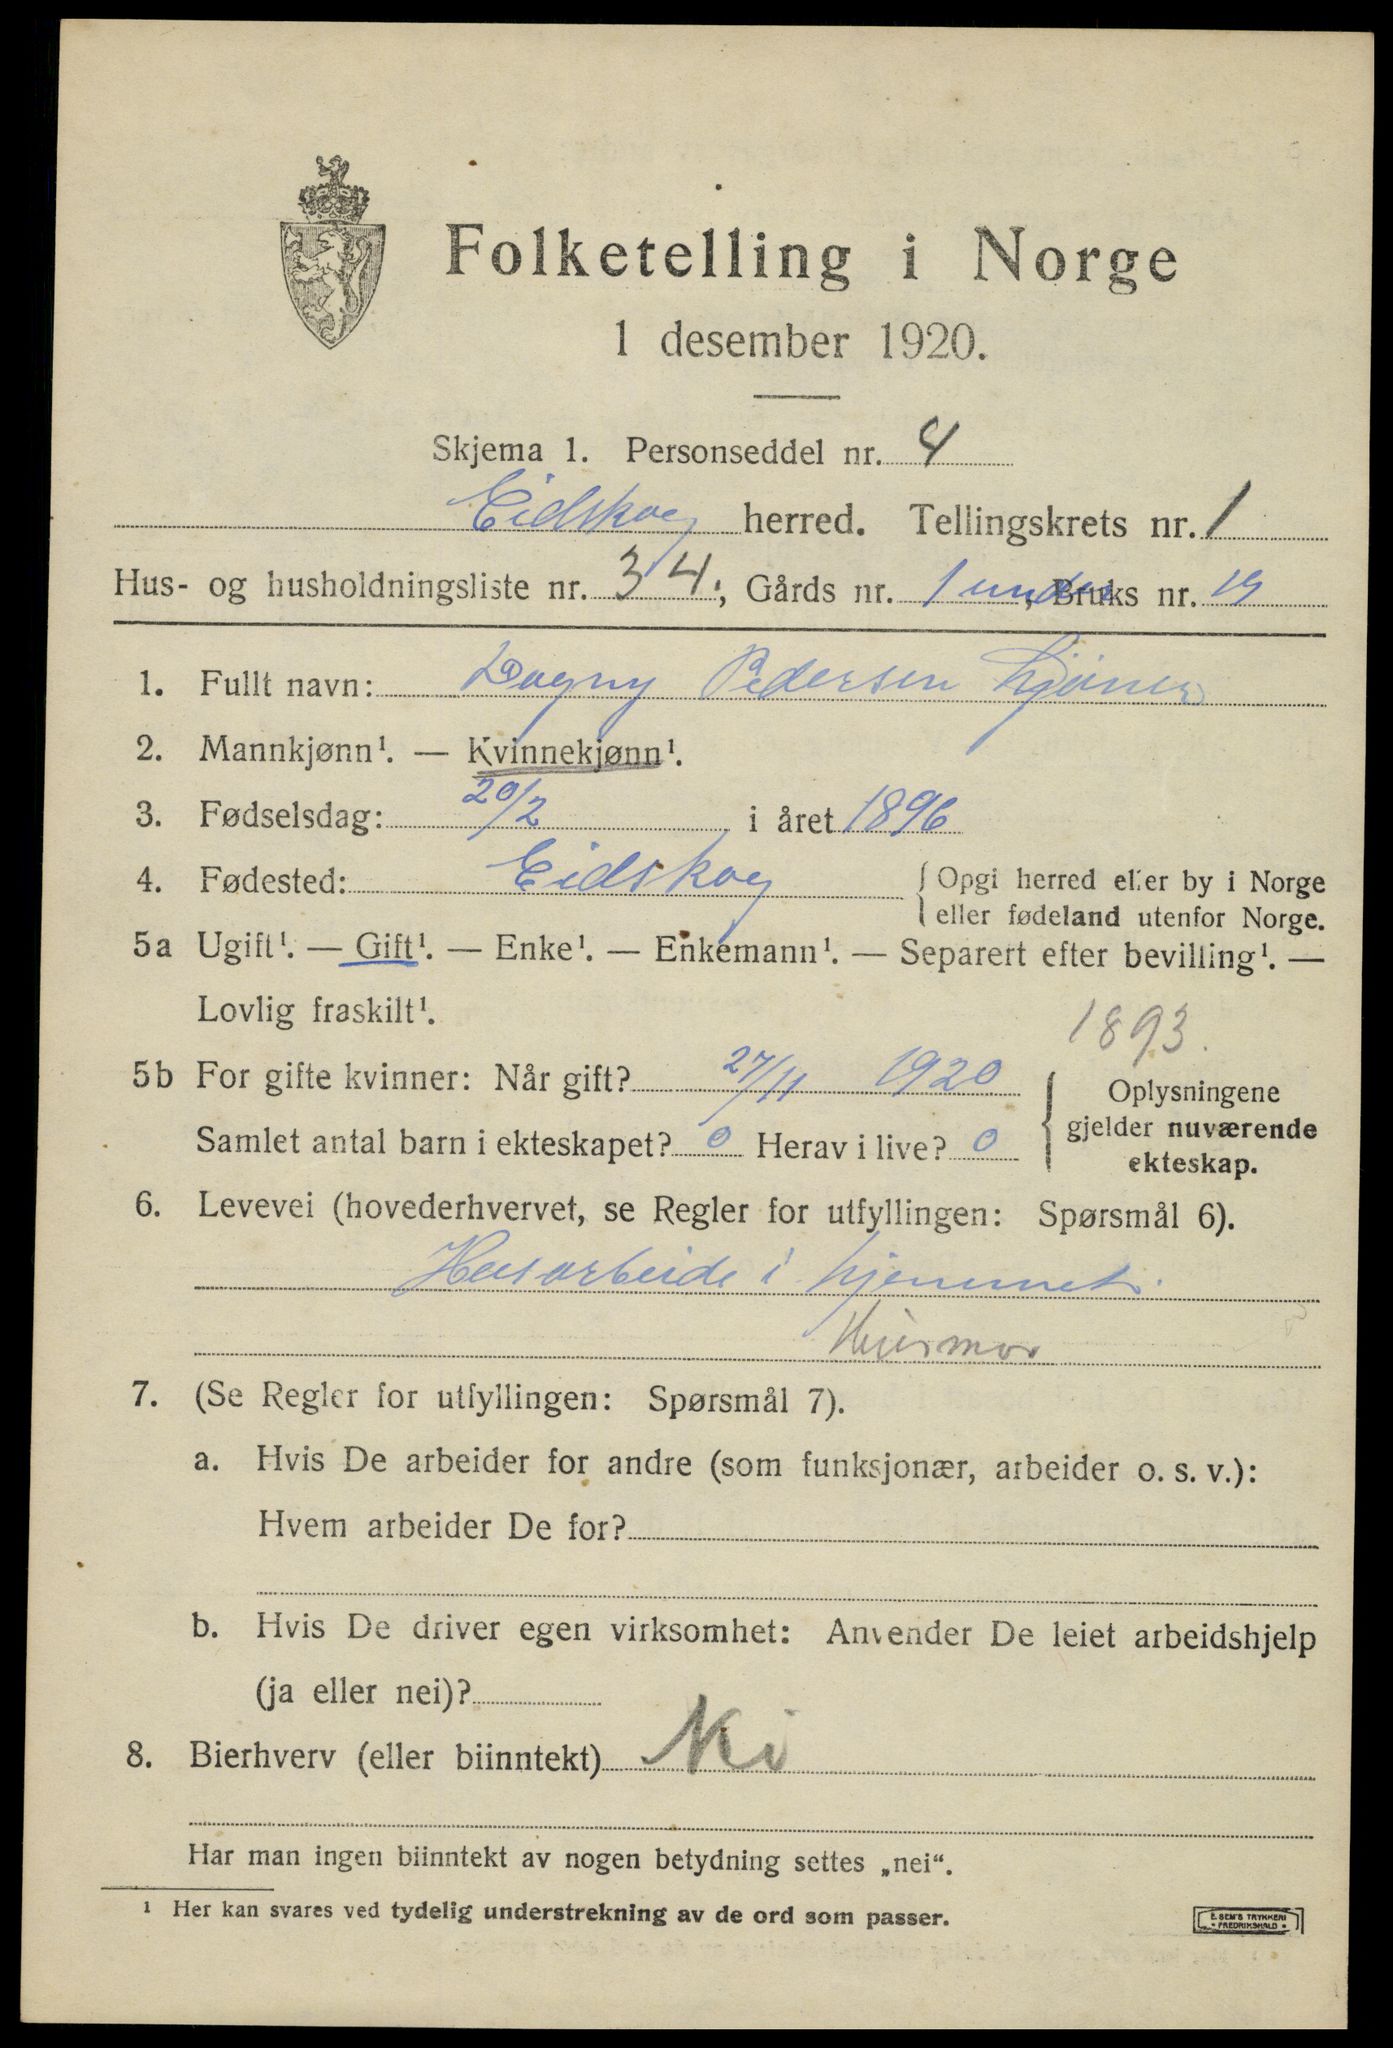 Folketelling i Norge
1 desember 1920.
Skjema 1. Personseddel nr. 4
Eidskog herred. Tellingskrets nr. 1
Hus- og husholdningsliste nr. 34, Gårds nr. 1 under, Bruks nr. 19
1. Fullt navn: Dagny Pedersen
2. Mannkjønn¹. — Kvinnekjønn¹.
3. Fødselsdag: 20/2 i året 1896
4. Fødested: Eidskog { Opgi herred eller by i Norge
eller fødeland utenfor Norge.
5a Ugift¹. — Gift¹. — Enke¹. — Enkemann¹. — Separert efter bevilling¹. —
Lovlig fraskilt¹.
1893.
5b For gifte kvinner: Når gift? 27/11 1920 { Oplysningene
gjelder nuværende
Samlet antal barn i ekteskapet? 0 Herav i live? 0
ekteskap.
6. Levevei (hovederhvervet, se Regler for utfyllingen: Spørsmål 6).
Husarbeide i hjemmet.
Husmor
7. (Se Regler for utfyllingen: Spørsmål 7).
a. Hvis De arbeider for andre (som funksjonær, arbeider o. s. v.):
Hvem arbeider De for?
b. Hvis De driver egen virksomhet: Anvender De leiet arbeidshjelp
(ja eller nei)?
8. Bierhverv (eller biinntekt) Nei
Har man ingen biinntekt av nogen betydning settes „nei“.
¹ Her kan svares ved tydelig understrekning av de ord som passer.
E. SEM'S TRYKKERI
FREDRIKSHALD